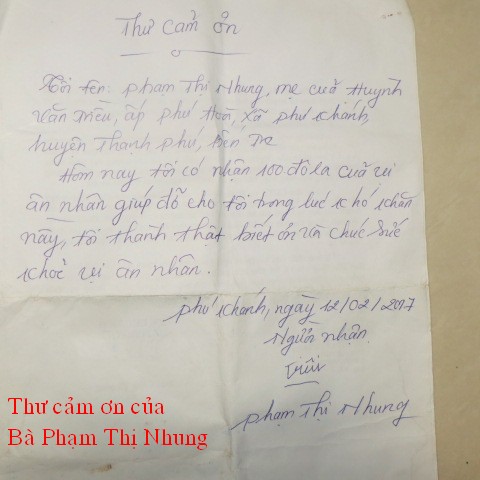 Thư cảm ơn
Tôi tên: Phạm Thị Nhung, mẹ cuả Huỳnh
Văn Mều, ấp phú Hoà, Xã phú Khánh,
huyện Thạnh phú, bến Tre
Hôm nay tôi có nhận 100 đô la cuả vị
ân nhân giúp đỡ cho tôi trong lúc khó khăn
này, tôi thành thật biết ơn và chúc sức
khoẻ vị ân nhân.
phú khánh, ngày 12/02/2017
Người nhận
phạm Thị Nhung
Thư cảm ơn của
Bà Phạm Thị Nhung